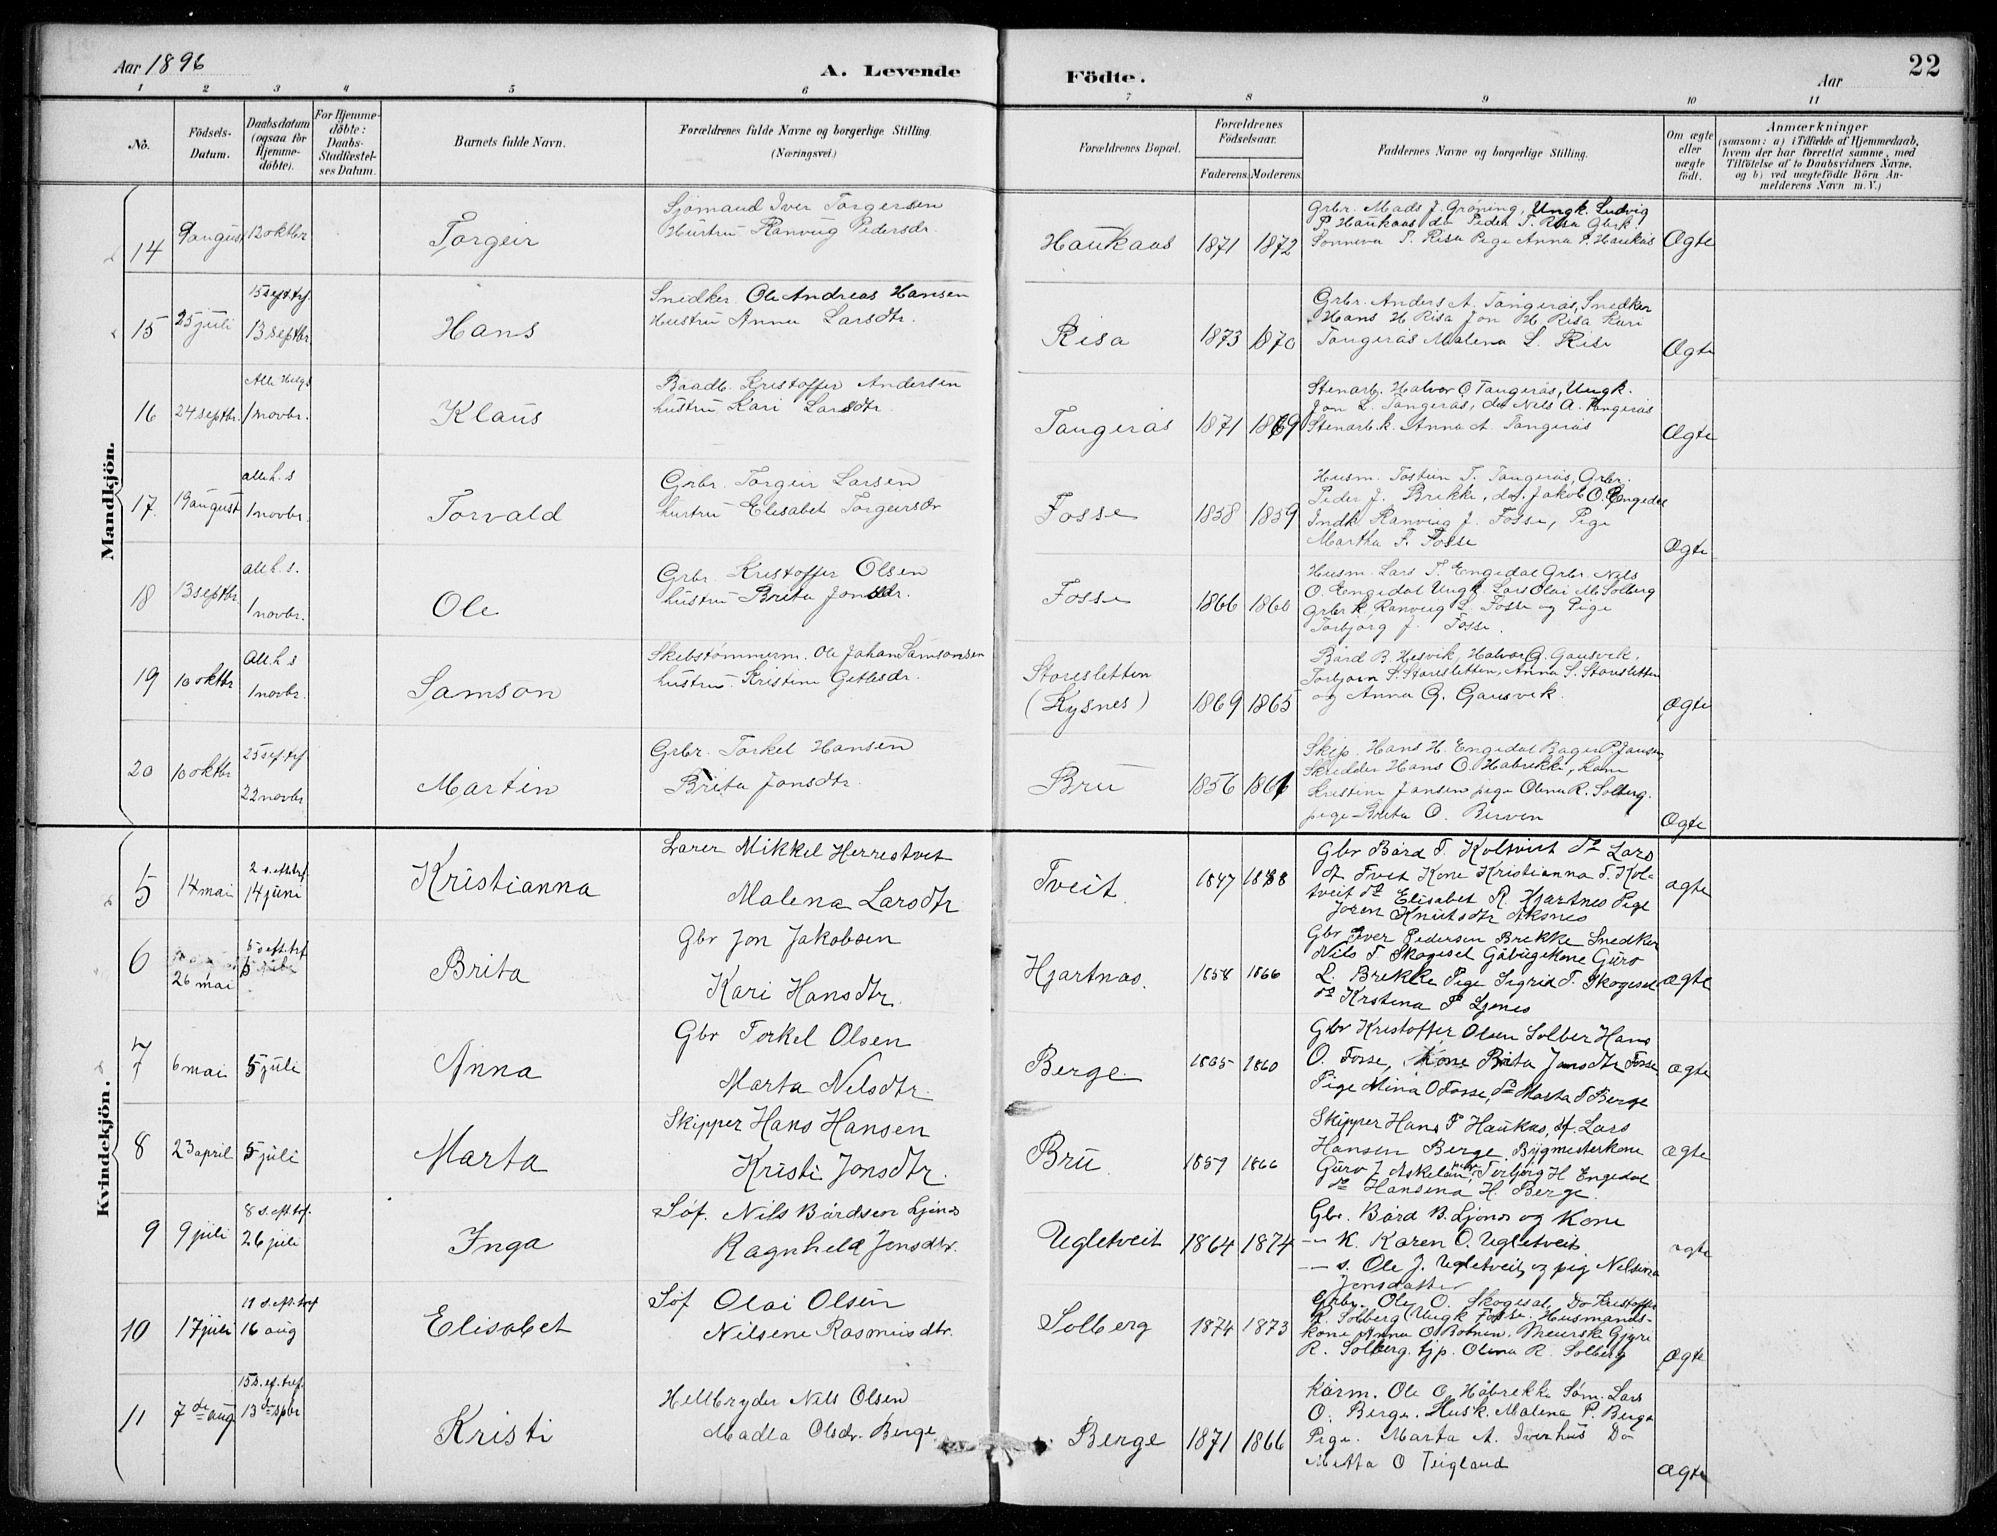 Aar 1896
A. Levende
Födte.
Aar
22
1 2 3 4 5 6 7 8 9 10 11
No.
Födsels-
Datum.
Daabsdatum
(ogsaa for
Hjemme-
döbte).
For Hjemme-
döbte:
Daabs-
Stadfæstel-
ses Datum.
Barnets fulde Navn.
Forældrenes fulde Navne og borgerlige Stilling.
(Næringsvei.)
Forældrenes Bopæl.
Forældrenes
Födselsaar.
Faderens. Moderens.
Faddernes Navne og borgerlige Stilling.
Om ægte
eller
uægte
födt.
Anmærkninger
(saasom: a) i Tilfælde af Hjemmedaab,
hvem der har forrettet samme, med
Tilföielse af to Daabsvidners Navne,
og b) ved uægtefödte Börn An-
melderens Navn m. V.)
Mandkjön.
14
9 august
12 oktbr
Torgeir
Sjömand Iver Torgersen
Hustru Ranveig Pedersdr
Haukaas
1871 1872
Grbr. Mads J. Gröning, Ungk. Ludvig
P. Haukaas do Peder T. Risa Gbrk.
Sonneva T. Risa Pige Anna P. Haukås
Ægte
15
25 juli
15 s. ef. trf.
13 septbr.
Hans
Snedker Ole Andreas Hansen
Hustru Anna Larsdtr.
Risa
1873 1870
Grbr. Anders A. Tangerås, Snedker
Hans H Risa Jon H. Risa Kari
Tangerås Malena L. Risa
Ægte
16
24 septbr.
Alle Helgs
1 novbr.
Klaus
Baadb. Kristoffer Andersen
hustru Kari Larsdtr.
Tangerås
1871 1869
Stenarb. Halvor O Tangerås, Ungk.
Jon L. Tangerås, do Nils A. Tangerås
Stenarb.k. Anna A. Tangerås
Ægte
17.
19 august
alle h. s
1 novbr.
Torvald
Grbr. Torgeir Larsen
hustru Elisabet Torgeirsdr
Fosse
1858 1859
Husm. Tostein T. Tangerås, Grbr.
Peder J. Brekke, do. Jakob O. Engedal
Indk. Ranveig J. Fosse, Pige
Martha T. Fosse
Ægte
18
13 septbr
alle h. s.
1 novbr.
Ole
Grbr. Kristoffer Olsen
hustru Brita Jonsdr.
Fosse
1866 1860
Husm. Lars T. Engedal Grbr. Nils
O. Engedal Ungk. Lars Olai M. Solberg
Grbr k Ranveig L. Fosse og Pige
Torbjorg J. Fosse.
19
10 oktbr
Alle h. s
1 novbr.
Samson
Skibstømmerm. Ole Johan Samsonsen
hustru Kristine Gitlesdr.
Storesletten
(Kysnes)
1869 1865
Bård B. Hesvik, Halvor G. Gausvik,
Torbjørn S. Storesletten, Anna S. Storesletten
og Anna G. Gausvik.
Ægte
20
10 oktbr
25 s ef. trf
22 novbr
Martin
Grbr. Torkel Hansen
Brita Jonsdtr.
Bru
1856 1861
Skip. Hans H. Engedal Bager P. Jansen,
Skredder Hans O. Håbrekke, kone
Kristine Jansen pige Olena R. Solberg.
pige Brita O. Berven
Ægte
Kvindekjön.
5
14 mai
2 s. eft. trf
14 juni
Kristianna
Lærer Mikkel Herrestvet
Malena Larsdtr
Tveit
1847
Gbr Bård T. Kolltveit do Lars
Tveit Kone Kristianna T. Kol-
tveit do Elisabet R. Hjartnes Pige
Joren Knutsdtr Aksnes
ægte
6
26 mai
5 s. eft. trf
Brita
Gbr Jon Jakobsen
Kari Hansdtr.
Hjartnas.
1858 1866
Gbr Iver Pedersen Brekke Snedker
Nils T Skogesel Gåbrugekone Guro
L. Brekke Pige Sigrid T. Skogesel
do Krstena P Ljones
ægte
7
6 mai
5 juli
Anna
Gbr Torkel Olsen
Marta Nelsdtr.
Berge
1865 1860
Gbr Kristoffer Olsen Solber Hans
O. Fosse, Kone Brita Jonsdtr Fosse
Pige Mina O Fosse, do Marta T Berge
ægte
8
23 april
5 juli
Marta
Skipper Hans Hansen
Kristi Jonsdtr.
Bru
1857 1866
Skipper Hans P Haukas, Lars
Hansen Berge, Bygmesterkone
Guro J Askeland, Torbjorg H Engedal
do Hansena H Berge
ægte
9
9 juli
8 s. eft. tref.
26 juli
Inga
Søf. Nils Bårdsen Ljones
Ragnheld Jonsdtr.
Ugletveit
1864 1874
Gbr. Bård B. Ljones og Kone
— K. Karen O. Ugletveit
— s. Ole J. Ugletveit, og pig Nelsina
Jonsdatter
ægte
10
17 juli
11 s. eft. tref
16 aug
Elisabet
Søf Olai Olsen
Nilsene Rasmusdtr.
Solberg
1874 1873
Grbr. Ole O. Skogesal, Do Kristoffer
R. Solberg Ungk Fosse. Husmands-
kone Anna O. Botnen. Meierske Gjyri
R. Solberg. tjp. Olena R. Solberg
Ægte
11
7de aug
15 s. ef. tref.
13de spbr
Kristi
Hellbryder Nils Olsen
Madla Olsdr. Berge
Berge
1871 1866
Kårm. Ole O Håbrekke Søm. Lars
O. Berge. Husk. Malena P. Berge
Pige. Marta A. Iverhus Do
Metta O Teigland
Ægte